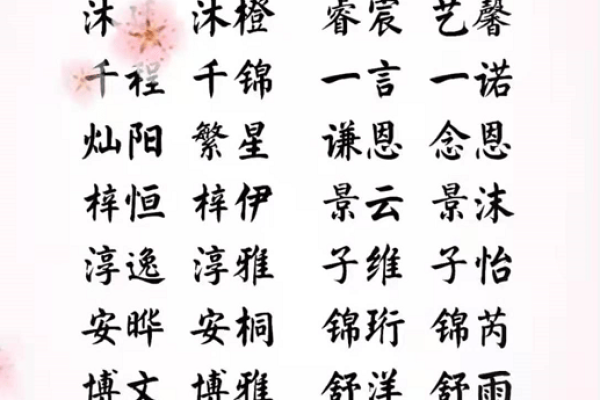 沐 沐橙 睿宸 艺馨
千程 千锦 一言 一诺
灿阳 繁星 谦恩 念恩
梓恒 梓伊 景云 景沫
淳逸 淳雅 子维 子怡
安晔 安桐 锦珩 锦芮
博文 博雅 舒洋 舒雨